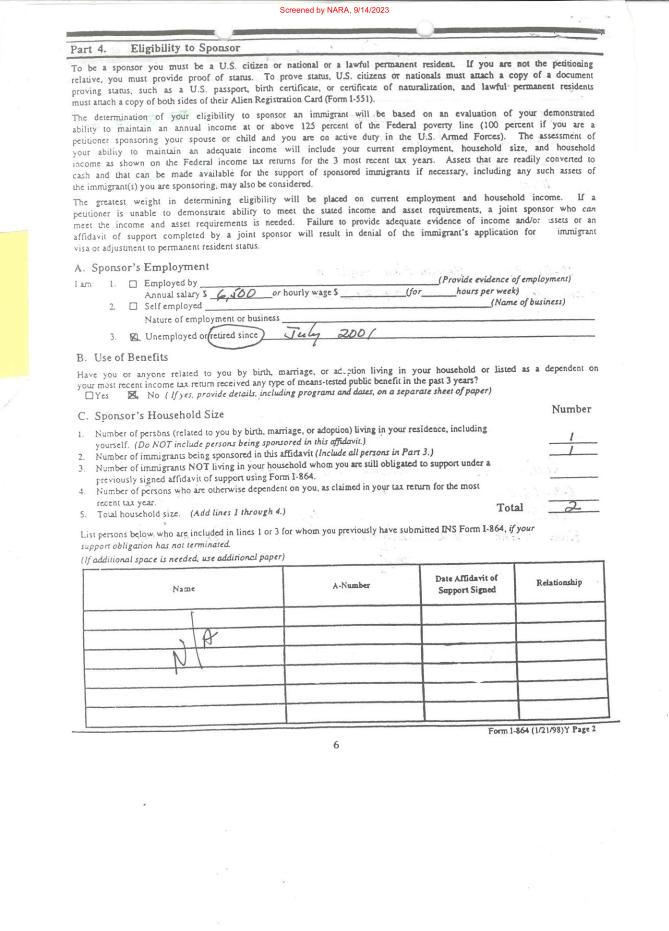 Screened by NARA, 9/14/2023
Part 4. Eligibility to Sponsor
To be a sponsor you must be a U.S. citizen or national or a lawful permanent resident. If you are not the petitioning
relative, you must provide proof of status. To prove status, U.S. citizens or nationals must attach a copy of a document
proving status, such as a U.S. passport, birth certificate, or certificate of naturalization, and lawful permanent residents
must attach a copy of both sides of their Alien Registration Card (Form I-551).
The determination of your eligibility to sponsor an immigrant will be based on an evaluation of your demonstrated
ability to maintain an annual income at or above 125 percent of the Federal poverty line (100 percent if you are a
petitioner sponsoring your spouse or child and you are on active duty in the U.S. Armed Forces). The assessment of
your ability to maintain an adequate income will include your current employment, household size, and household
income as shown on the Federal income tax returns for the 3 most recent tax years. Assets that are readily converted to
cash and that can be made available for the support of sponsored immigrants if necessary, including any such assets of
the immigrant(s) you are sponsoring, may also be considered.
The greatest weight in determining eligibility will be placed on current employment and household income. If a
petitioner is unable to demonstrate ability to meet the stated income and asset requirements, a joint sponsor who can
meet the income and asset requirements is needed. Failure to provide adequate evidence of income and/or assets or an
affidavit of support completed by a joint sponsor will result in denial of the immigrant's application for immigrant
visa or adjustment to permanent resident status.
A. Sponsor's Employment
I am 1. ☐ Employed by (Provide evidence of employment)
Annual salary $ 6,500 or hourly wage $ (for hours per week)
2. ☐ Self employed (Name of business)
Nature of employment or business
3. ☒ Unemployed or retired since July 2001
B. Use of Benefits
Have you or anyone related to you by birth, marriage, or adoption living in your household or listed as a dependent on
your most recent income tax return received any type of means-tested public benefit in the past 3 years?
☐ Yes ☒ No (If yes, provide details, including programs and dates, on a separate sheet of paper)
C. Sponsor's Household Size Number
1. Number of persons (related to you by birth, marriage, or adoption) living in your residence, including
yourself. (Do NOT include persons being sponsored in this affidavit.) 1
2. Number of immigrants being sponsored in this affidavit (Include all persons in Part 3.) 1
3. Number of immigrants NOT living in your household whom you are still obligated to support under a
previously signed affidavit of support using Form I-864.
4. Number of persons who are otherwise dependent on you, as claimed in your tax return for the most
recent tax year.
5. Total household size. (Add lines 1 through 4.) Total 2
List persons below who are included in lines 1 or 3 for whom you previously have submitted INS Form I-864, if your
support obligation has not terminated.
(If additional space is needed, use additional paper)
Name A-Number Date Affidavit of Support Signed Relationship
N/A
Form I-864 (1/21/98)Y Page 2
6